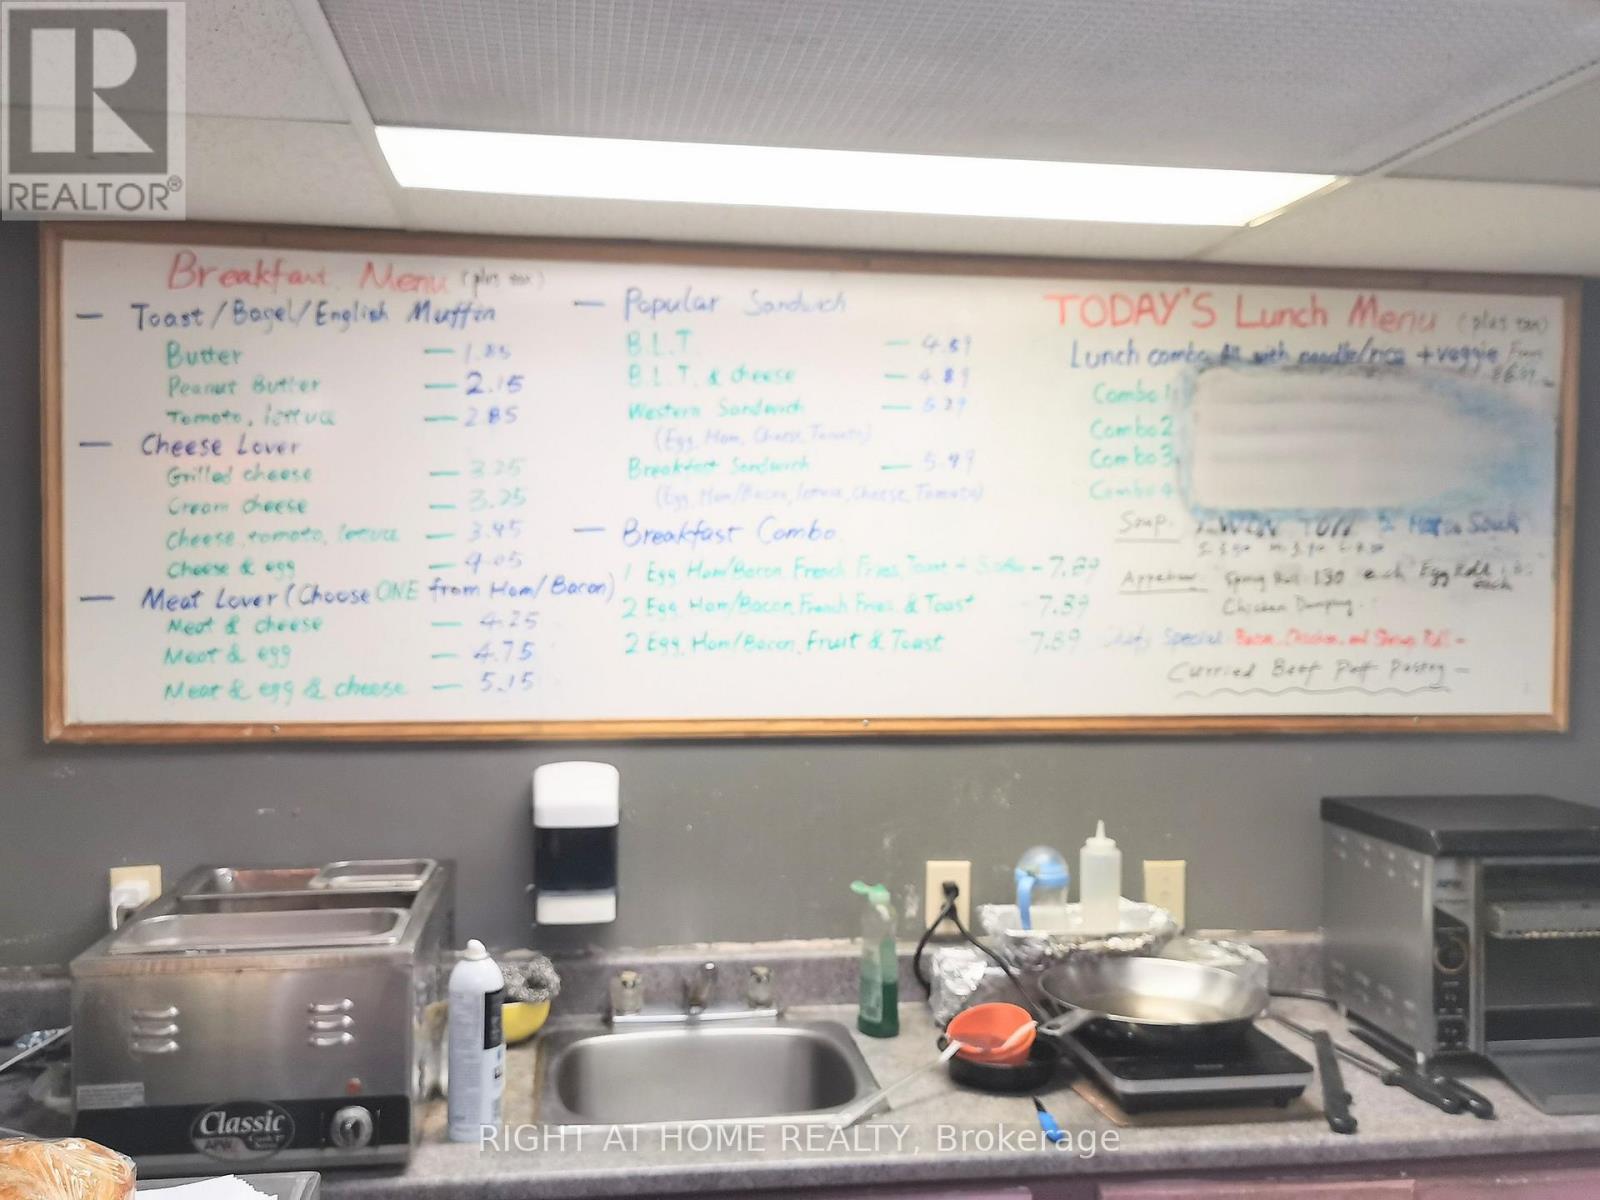 REALTOR®
Breakfast Menu (plus tax)
— Toast/Bagel/English Muffin
Butter — 1.85
Peanut Butter — 2.15
Tomato, lettuce — 2.85
— Cheese Lover
Grilled cheese — 3.25
Cream cheese — 3.25
Cheese, tomato, lettuce — 3.45
Cheese & egg — 4.05
— Meat Lover (Choose ONE from Ham/Bacon)
Meat & cheese — 4.25
Meat & egg — 4.75
Meat & egg & cheese — 5.15
— Popular Sandwich
B.L.T. — 4.59
B.L.T. & cheese — 4.89
Western Sandwich —
(Egg, Ham, Cheese, Tomato)
Breakfast Sandwich — 5.49
(Egg, Ham/Bacon, lettuce, Cheese, Tomato)
— Breakfast Combo
1 Egg Ham/Bacon, French Fries, Toast + — 7.89
2 Egg, Ham/Bacon, French Fries & Toast - 7.89
2 Egg, Ham/Bacon, Fruit & Toast 7.89
TODAY'S Lunch Menu (plus tax)
Lunch combo All with noodle/rice + veggie From
Combo 1:
Combo 2
Combo 3
Combo 4
Soup:
Appetizer: Spring Roll: 1.30 each Egg Roll each
Chicken Dumpling
Chef's Special: Bacon, Chicken, and Shrimp Roll -
Curried Beef Puff Pastry -
Classic
APW
RIGHT AT HOME REALTY, Brokerage